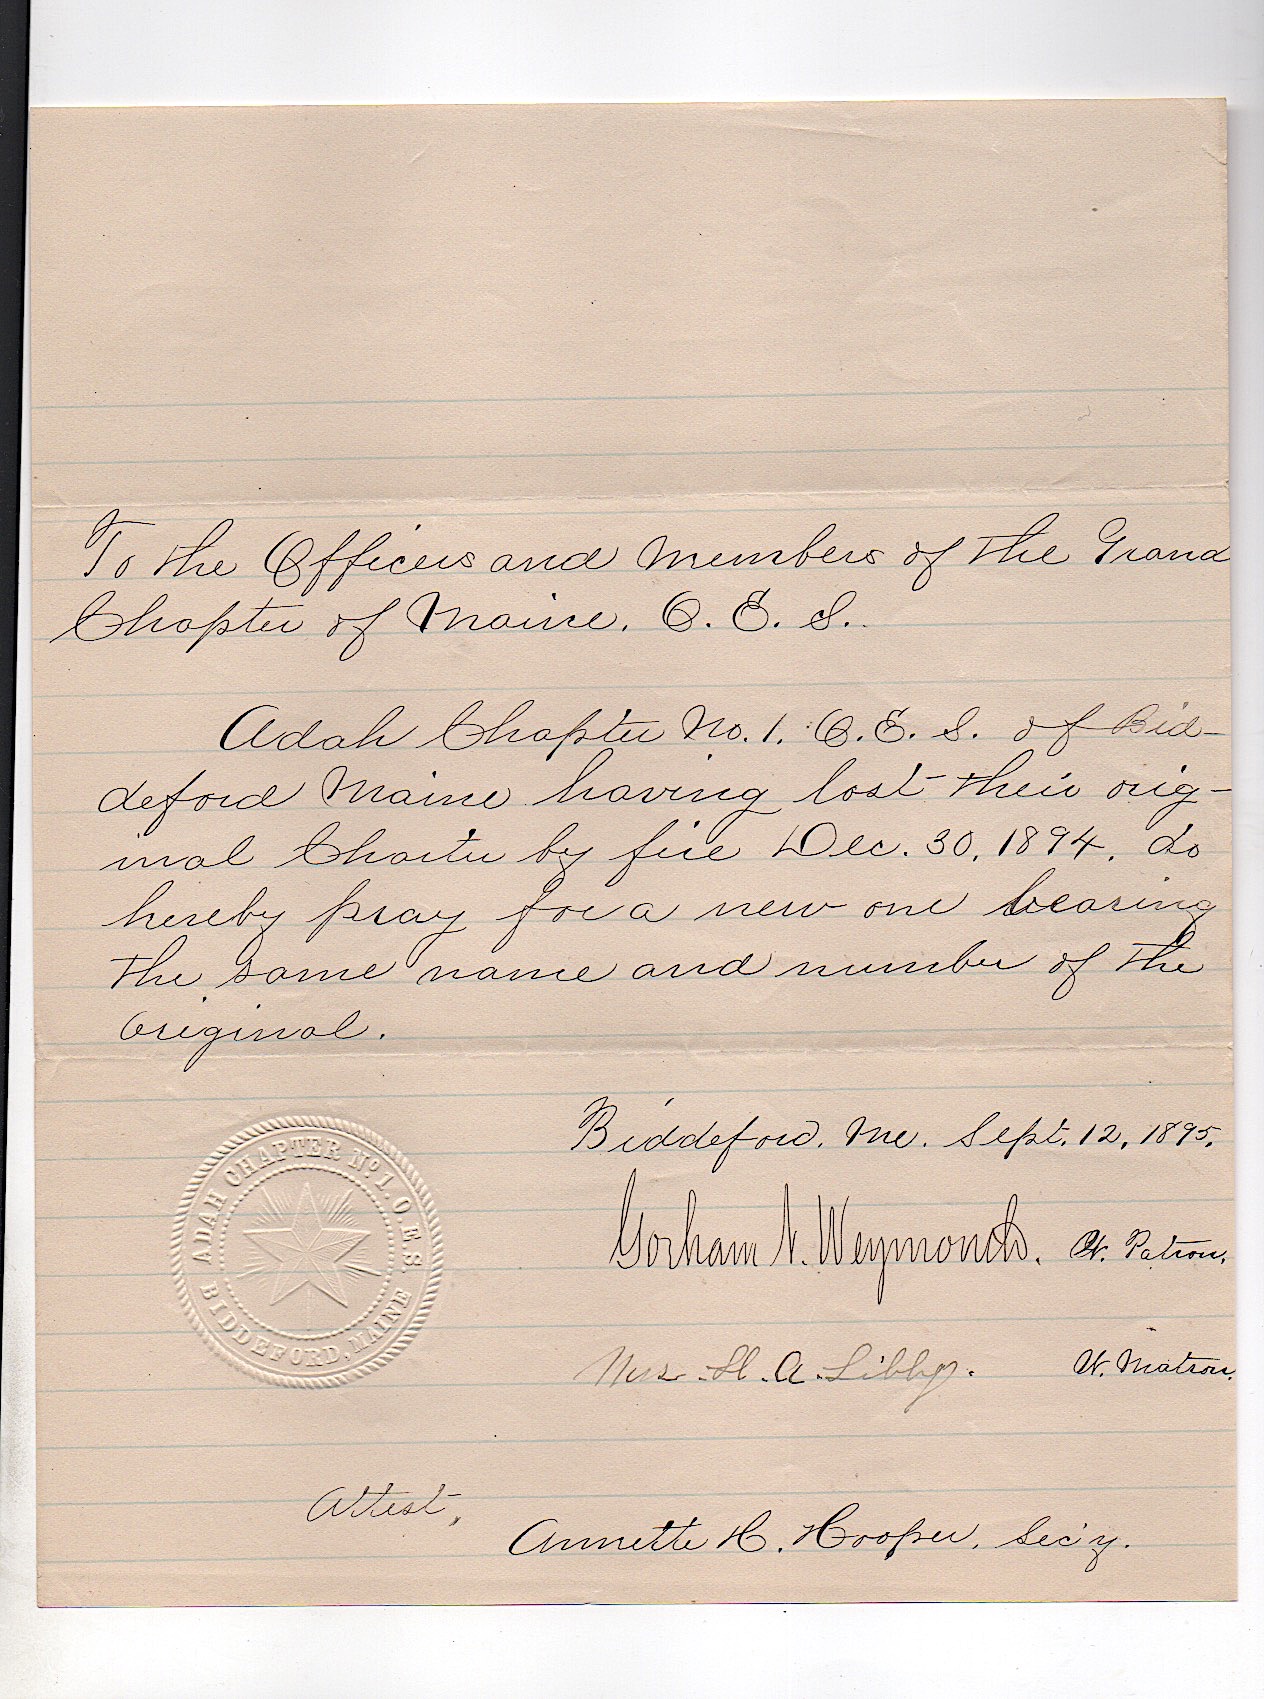 To the Officers and Members of the Grand
Chapter of Maine. O. E. S.
Adah Chapter No. 1. O. E. S. of Bid-
deford Maine having lost their orig-
inal Charter by fire Dec. 30, 1894, do
hereby pray for a new one bearing
the same name and number of the
original.
Biddeford, Me. Sept. 12, 1895.
ADAH CHAPTER No 1. O.E.S
BIDDEFORD, MAINE
Gorham N. Weymouth. W. Patron.
Mrs. H. A. Libby. W. Matron.
Attest,
Annette H. Hooper, Sec'y.